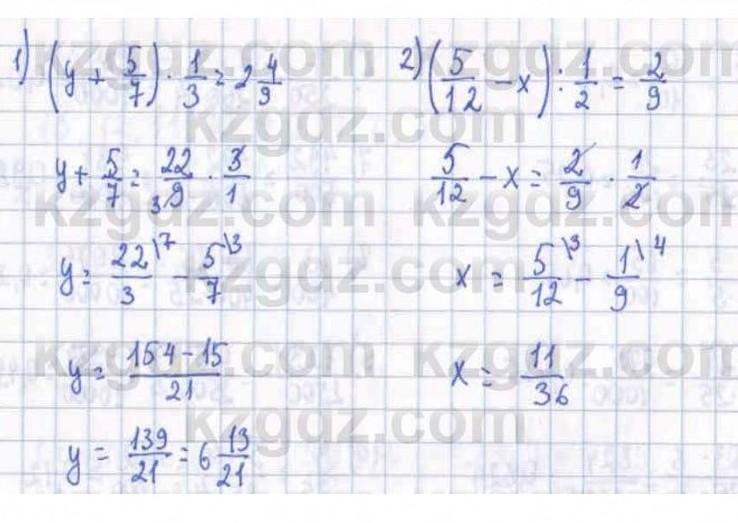 1) (y + 5/7) · 1/3 = 2 4/9
y + 5/7 = 22/9 · 3/1
3
y = 22/3 \7 - 5/7 \3
y = 154 - 15/21
y = 139/21 = 6 13/21
2) (5/12 - x) : 1/2 = 2/9
5/12 - x = 2/9 · 1/2
x = 5/12 \3 - 1/9 \4
x = 11/36
kzgdz.com kzgdz.com
kzgdz.com
kzgdz.com kzgdz.com
kzgdz.com
kzgdz.com kzgdz.com
kzgdz.com